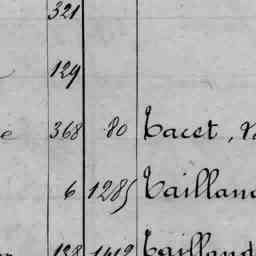 321
129
368 80 Tacet, N
6 1285 Tailland
138 1412 Tailland